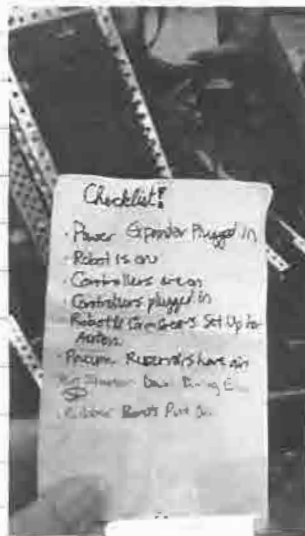 Checklist!
· Power Expander Plugged in
· Robot is on
· Controllers are on
· Controllers plugged in
· Robot & Set Up for
Auton
· Reservoirs have air
Down
· Rubber Bands Put On